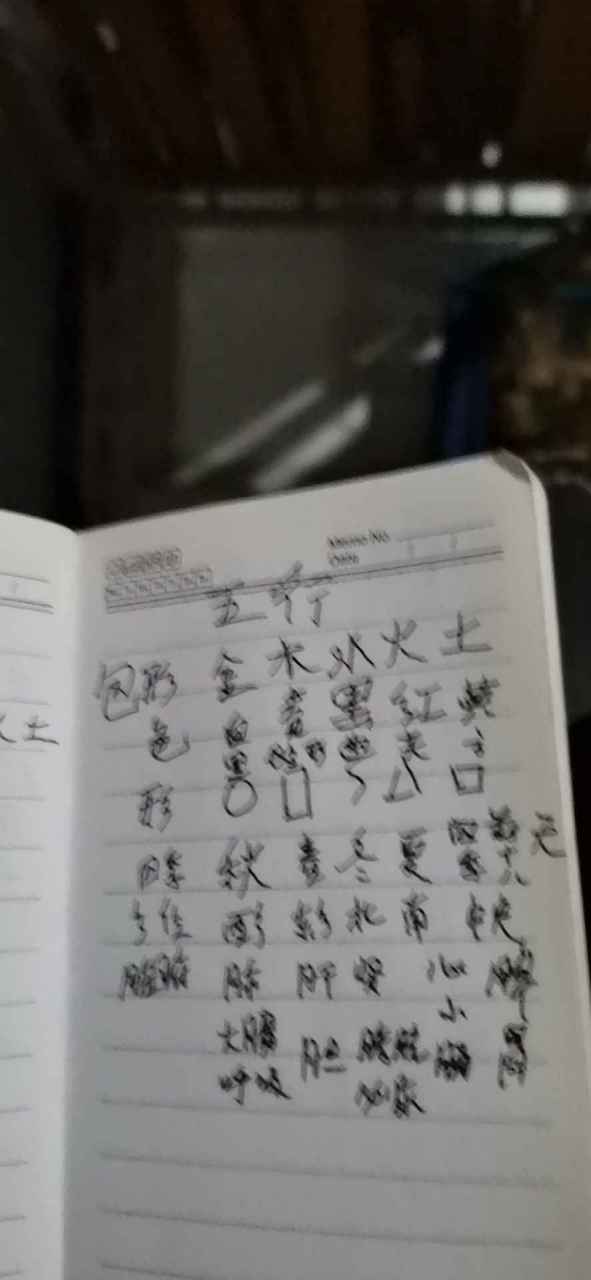 Memo No.
Date
五行
包形 金 木 水 火 土
色 白 青 黑 红 黄
形
四季 秋 春 冬 夏 四季
方位 西方 东方 北 南 中央
脏腑 肺 肝 肾 心 脾
大肠 胆 膀胱 小肠 胃
呼吸 泌尿
火土